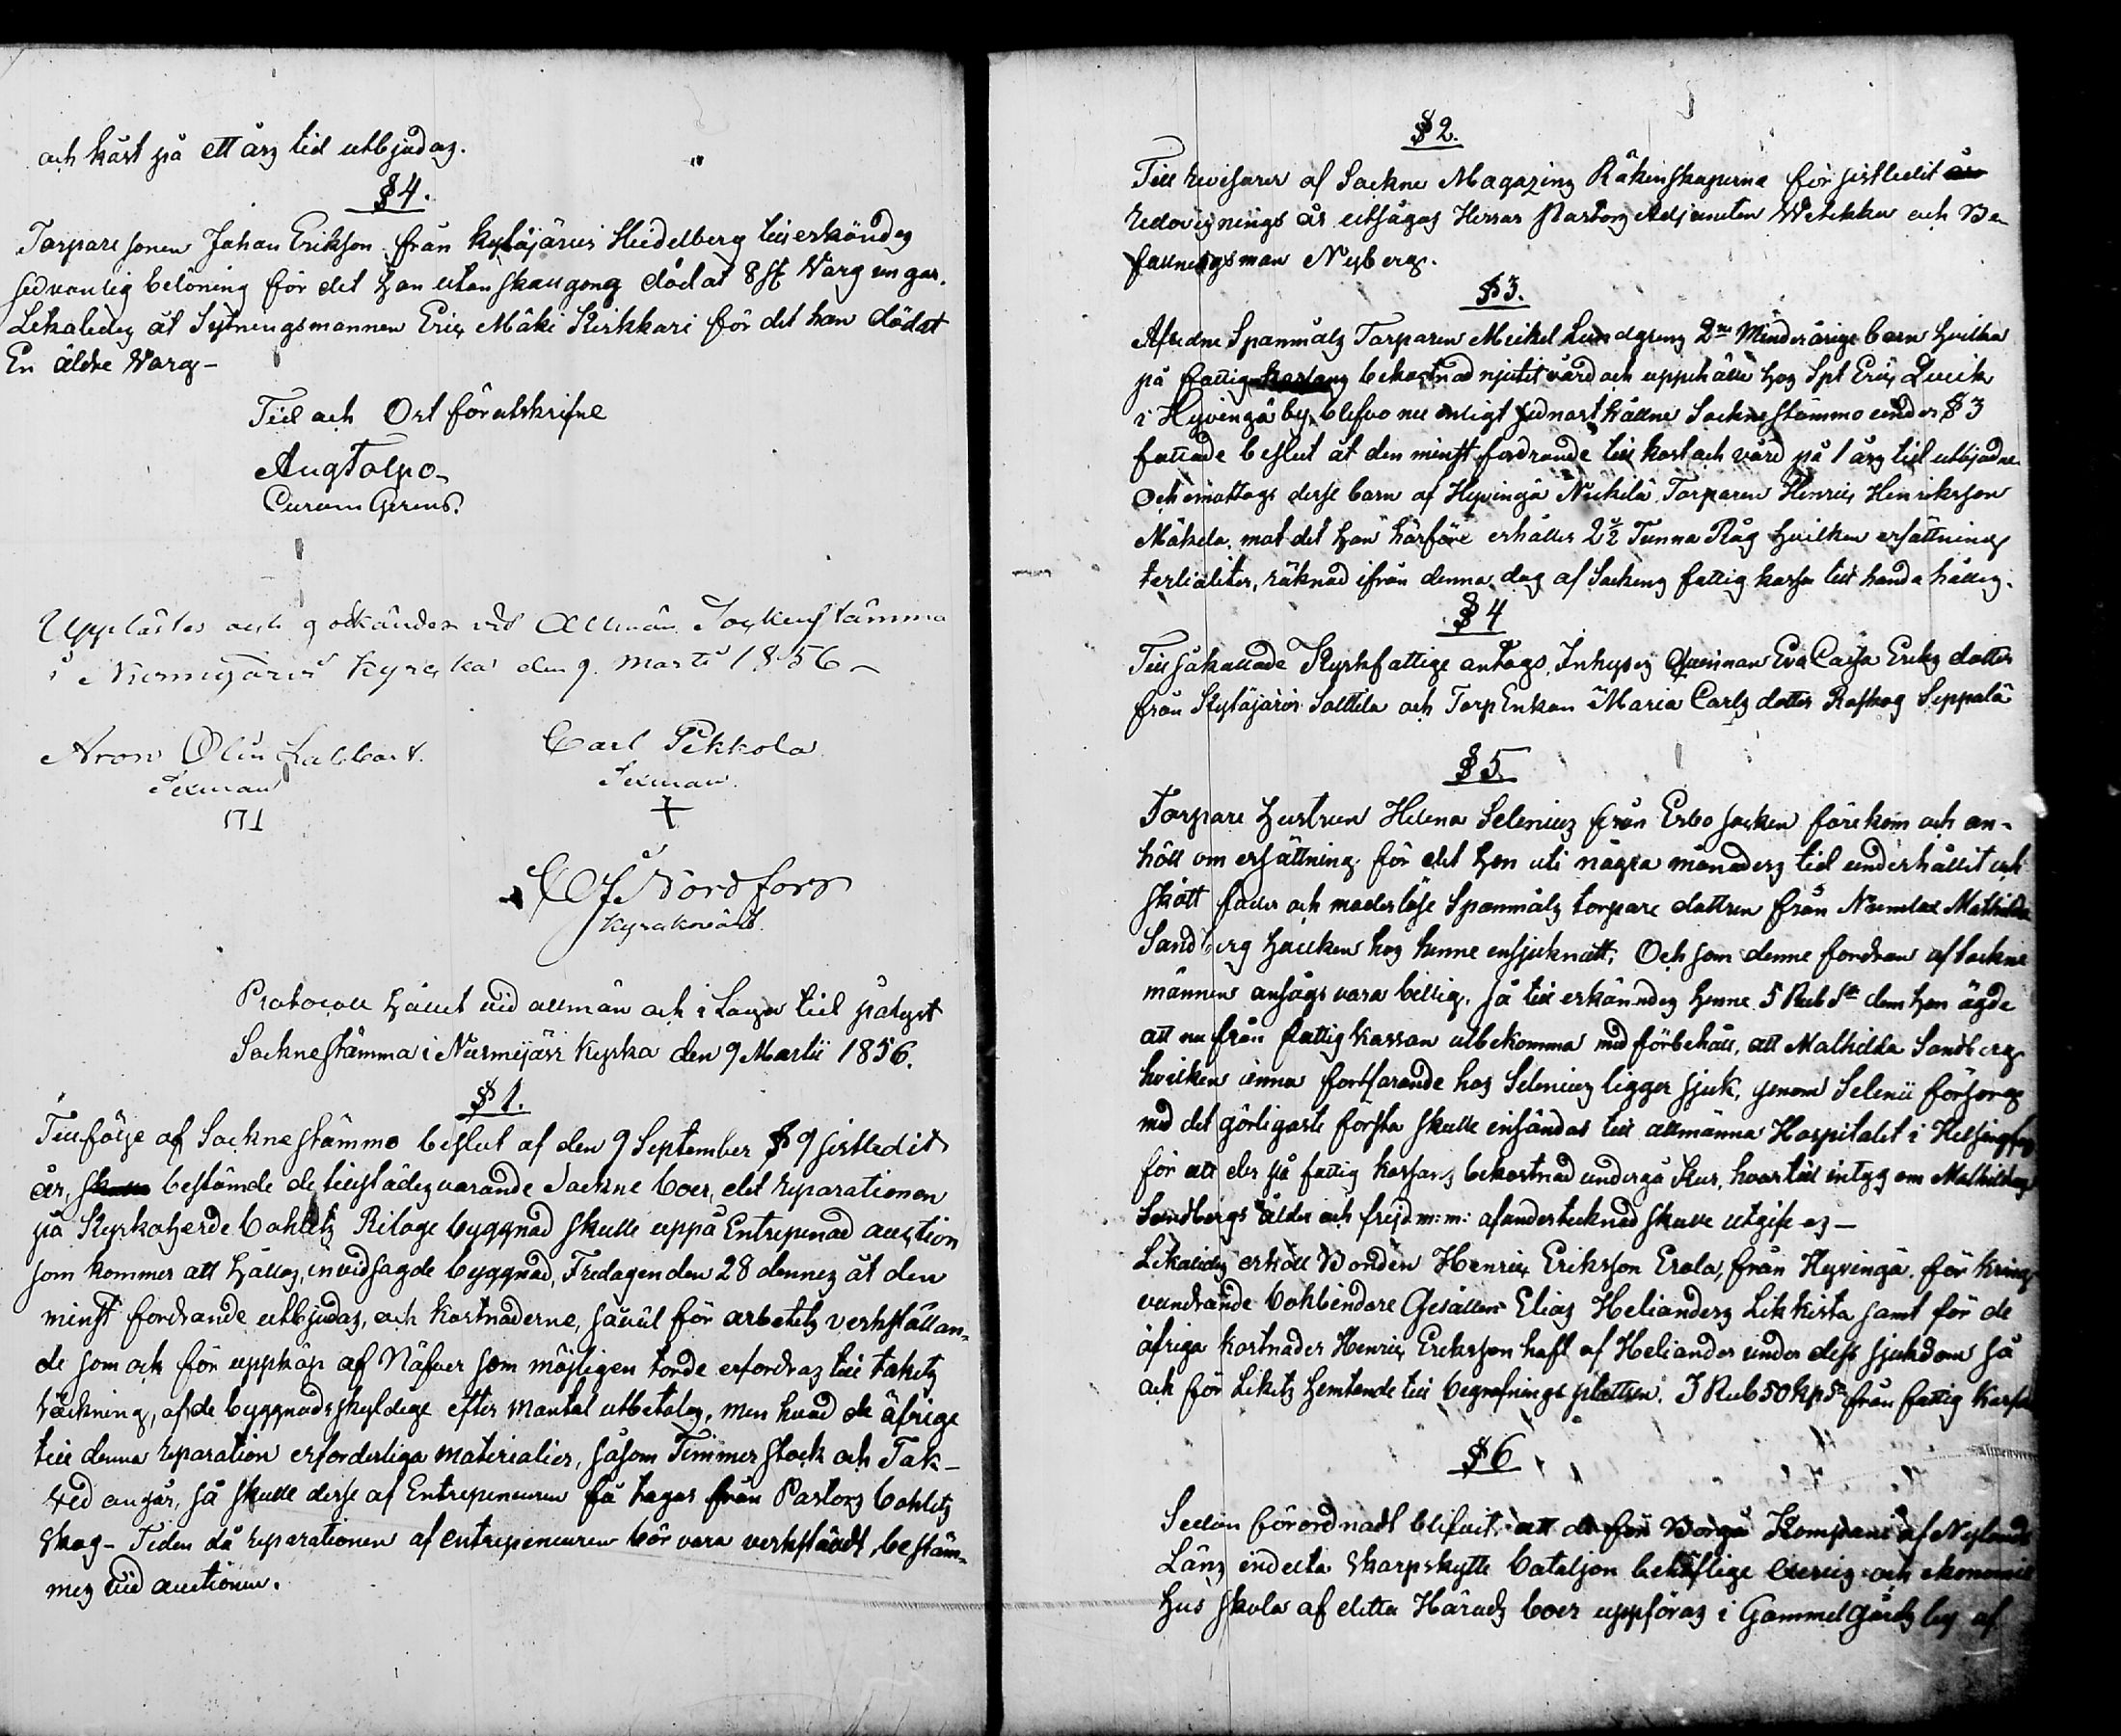 och kost på ett års tid utbjudas.
§ 4.
Torpare sonen Johan Erikson från Kytäjärvi Heidelberg tillerkändes
sedvanlig belöning för det han utan skallgong dödat 8 st Varg ungar.
Likaledes åt Sytningsmannen Eric Mäki Kirkkari för det han dödat
En äldre Varg –
Tid och Ort förutskrifne
Aug Tolpo
Curam Gerens.
Upplästes och godkändes vid Allmän Sockenstämma
i Nurmijärvi Kyrcka den 9. Martii 1856 –
Aron Olin Labbart. Carl Pekkola
Sexman Sexman.
CJ Nordfors
Kyrkovärd.
Protocoll hållit vid allmän och i Laga tid pålyst
Sockne stämma i Nurmijärvi Kyrka den 9 Martii 1856.
§ 1.
Till följe af Sockne stämmo beslut af den 9 September § 9 sistledit
år, bestämde de tillstädes varande Sockne boer, det reparationen
på Kyrkoherde bohlets Riloge byggnad skulle uppå Entrepenad auction
som kommer att hållas, invid sagde byggnad, Fredagen den 28 dennes åt den
minst fordrande utbjudas, och kostnaderne, såväl för arbetets verkställan-
de som ock för uppköp af Näfver som möjligen torde erfordras till takets
täckning, af de byggnads skyldige efter Mantal utbetalas, men hvad de äfrige
till denna reparation erforderliga materialier, såsom Timmer stock och Tak-
ved angår, så skulle desse af Entrepeneuren få tagas från Pastors bohlets
skog – Tiden då reparationen af entrepeneuren bör vara verkstäldt, bestäm-
mes vid auctionen.
§ 2.
Till revisorer af Sockne Magazins Räkenskaperna för sistledit
redovisnings år utsågos Herrar Pastors Adjuncten Wetikko och Be-
fallningsman Nyberg.
§ 3.
Afledne Spanmåls Torparen Mickel Lundgrens 2ne Minderårige barn hvilka
på fattig bekostnad njutit vård och uppehälle hos Spl Eric Qvick
i Hyvingä by, blefvo nu enligt sednast hållne Sockne stämmo under § 3
fattade beslut åt den minst fordrande till kost och vård på 1 års tid utbjudne
Och emottogs desse barn af Hyvingä Nickilä Torparen Henric Henriksson
Mäkela, mot det han härföre erhåller 2½ Tunna Råg hvilken ersättning
tertialiter, räknad ifrån denna dag af Sockens fattig kassa till handa hålles.
§ 4
Till såkallade Kyrkfattige antogs Inhyses Qvinnan Eva Caisa Eriks dotter
från Kytäjärvi Solttila och Torp Enkan Maria Carls dotter Raskog Seppalä
§ 5.
Torpare hustrun Helena Selenius från Esbo socken förekom och an-
höll om ersättning för det hon uti några månaders tid underhållit och
skött fader och moderlöse Spanmåls torpare dottren från Numlax Mathilda
Sandberg hvilken hos henne insjuknatt. Och som denne fordran af Sockne
männen ansågs vara billig, så tillerkändes henne 5 Rub Sr dem hon ägde
att nu från fattig kassan utbekomma med förbehåll, att Mathilda Sandberg
hvilken ännu fortfarande hos Selenius ligger sjuk, genom Selenii försorg
med det görligaste första skulle insändas till allmänna Hospitalet i Helsingfors
för att der på fattig kassans bekostnad undergå Kur, hvartill intyg om Mathildas
Sandbergs ålder och frejd m: m: af undertecknad skulle utgifvas –
Likaledes erhöll Bonden Henric Eriksson Erola, från Hyvingä för kring
vandrande bokbindare Gesällen Elias Helianders Likkista samt för de
äfriga kostnader Henric Eriksson haft af Heliander under dess sjukdom så
ock för Likets hemtande till begrafnings platsen. 3 Rub 50 kp Sr från fattig kassan
§ 6
Sedan förordnadt blifvit, att de för Borgå Kompani af Nylands
Läns indelta Skarpskytte bataljon behöflige Exercis och ekonomie
hus skola af detta Härads boer uppföras i Gammelgårds by af